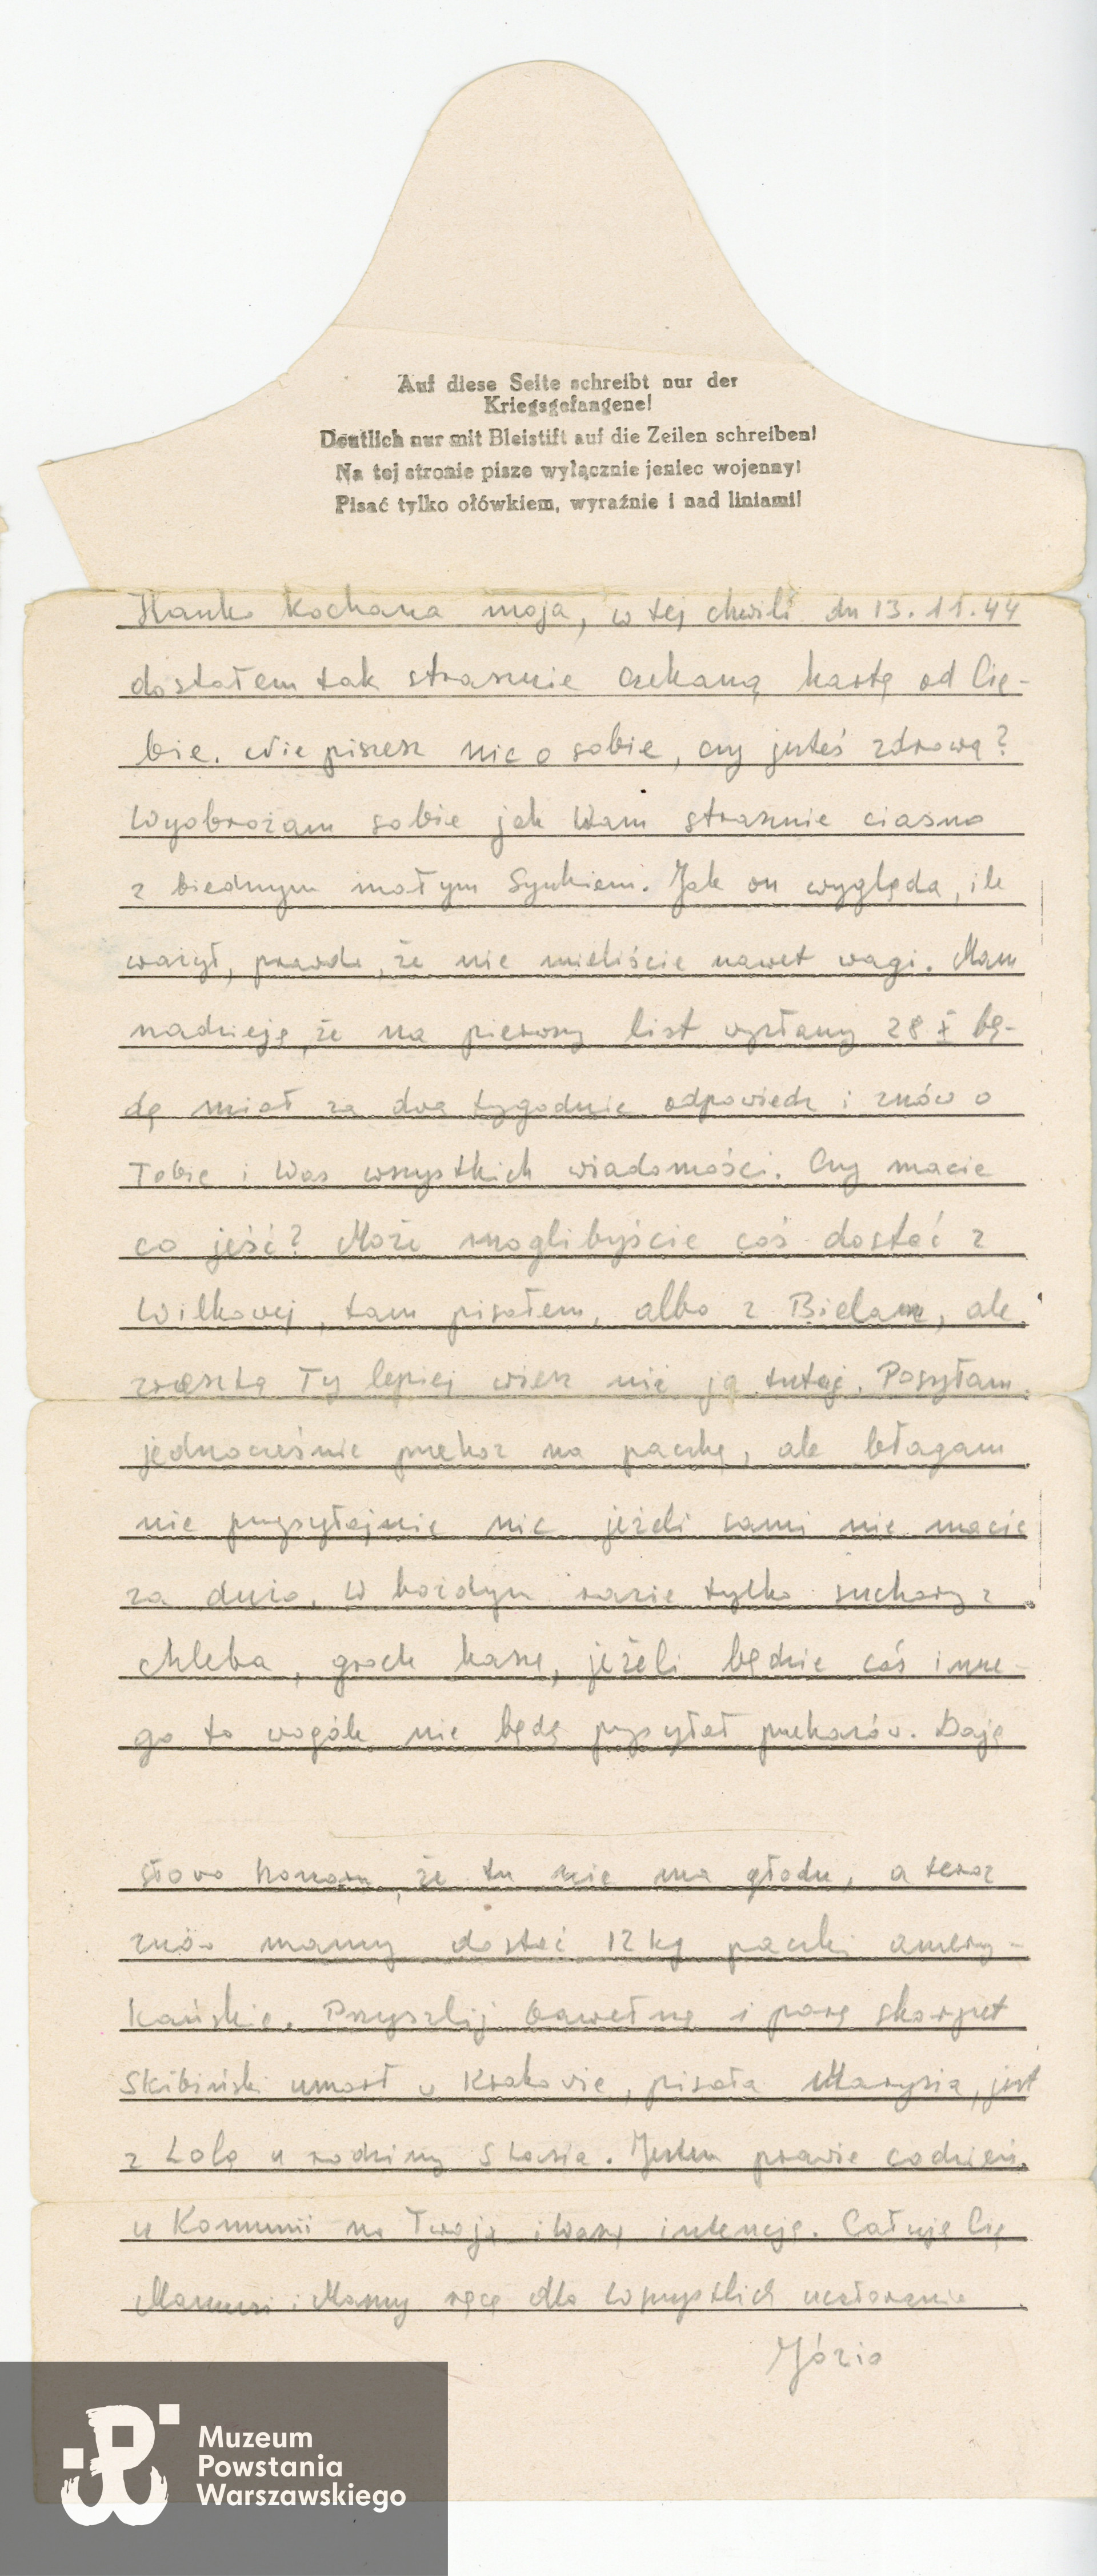 Auf diese Seite schreibt nur der
Kriegsgefangene!
Deutlich nur mit Bleistift auf die Zeilen schreiben!
Na tej stronie pisze wyłącznie jeniec wojenny!
Pisać tylko ołówkiem, wyraźnie i nad liniami!
Hanko kochana moja, w tej chwili dn 13.11.44
dostałem tak strasznie czekaną kartę od Cie-
bie. Nie piszesz nic o sobie, czy jesteś zdrowa?
Wyobrażam sobie jak Wam strasznie ciasno
z biednym małym Synkiem. Jak on wygląda, ile
ważył, prawda, że nie mieliście nawet wagi. Mam
nadzieję, że na pierwszy list wysłany 28 X bę-
dę miał za dwa tygodnie odpowiedź i znów o
Tobie i Was wszystkich wiadomości. Czy macie
co jeść? Może moglibyście coś dostać z
Wilkowej, tam pisałem, albo z Bielan, ale
zresztą Ty lepiej wiesz niż ja tutaj. Posyłam
jednocześnie przekaz na paczkę, ale błagam
nie przysyłajcie nic jeżeli sami nie macie
za dużo. W każdym razie tylko suchary z
chleba, groch kaszę, jeżeli będzie coś inne-
go to wogóle nie będę przysyłał przekazów. Daję
słowo honoru, że tu nie ma głodu, a teraz
znów mamy dostać 12 kg paczki amery-
kańskie. Przyszlij bawełnę i parę skarpet
Skibiński umarł w Krakowie, pisała Marysia, jest
z Lolą u rodziny Stasia. Jestem prawie codzień
u Komunii na Twoją i Waszą intencję. Całuję Cię
Mamusi i Mamy ręce dla wszystkich ucałowania
Józio
Muzeum
Powstania
Warszawskiego